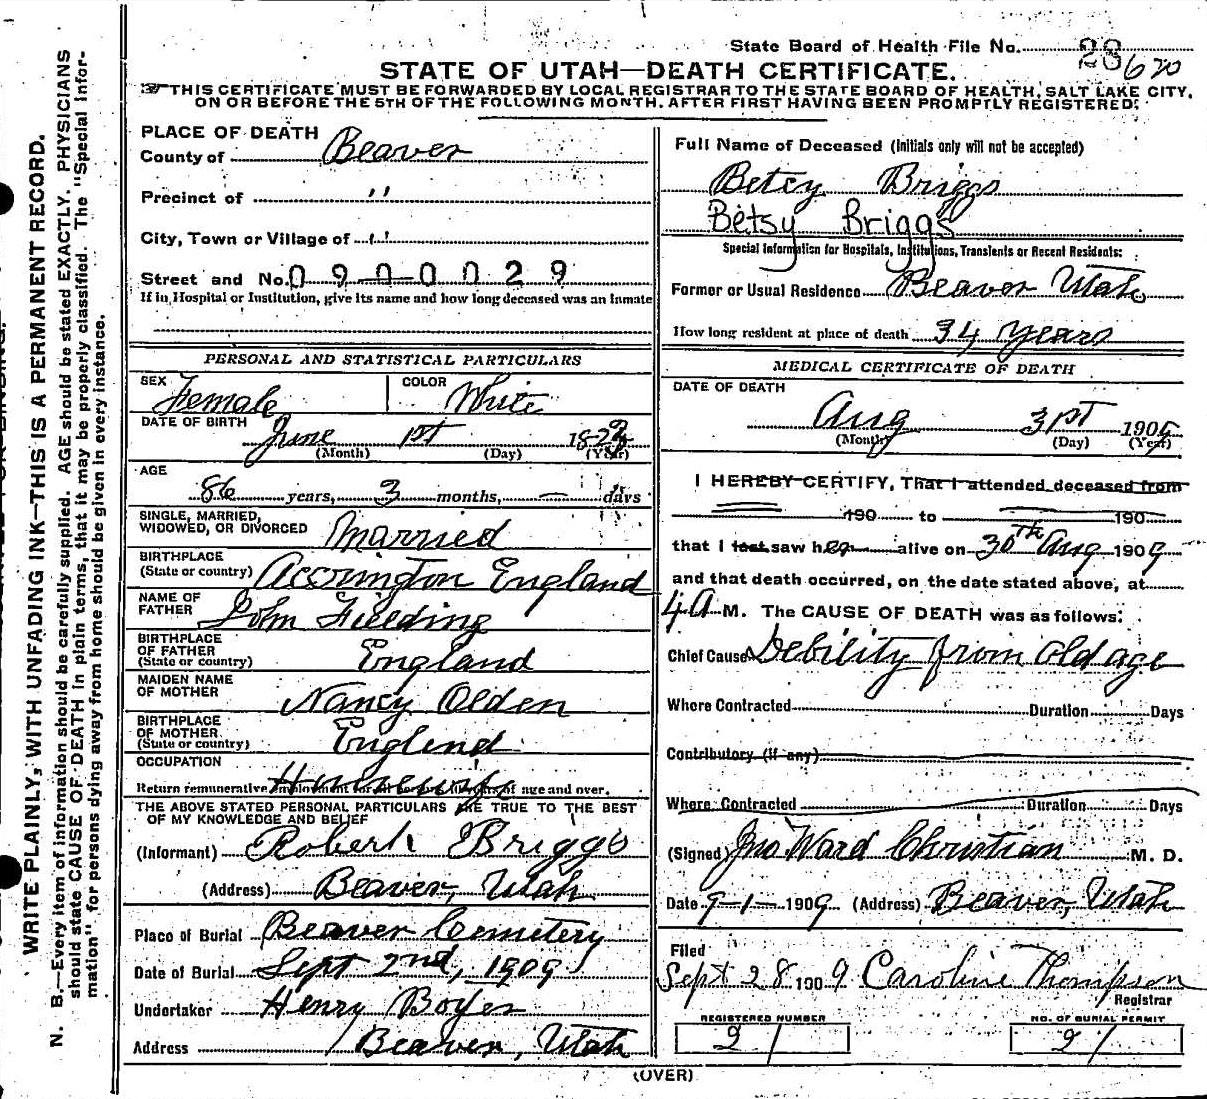 State Board of Health File No. 28 620
STATE OF UTAH—DEATH CERTIFICATE.
THIS CERTIFICATE MUST BE FORWARDED BY LOCAL REGISTRAR TO THE STATE BOARD OF HEALTH, SALT LAKE CITY,
ON OR BEFORE THE 5TH OF THE FOLLOWING MONTH. AFTER FIRST HAVING BEEN PROMPTLY REGISTERED.
WRITE PLAINLY, WITH UNFADING INK—THIS IS A PERMANENT RECORD.
N. B.—Every item of information should be carefully supplied. AGE should be stated EXACTLY. PHYSICIANS
should state CAUSE OF DEATH in plain terms, that it may be properly classified. The "Special Infor-
mation" for persons dying away from home should be given in every instance.
PLACE OF DEATH
County of Beaver
Precinct of "
City, Town or Village of "
Street and No. 0900029
If in Hospital or Institution, give its name and how long deceased was an inmate
PERSONAL AND STATISTICAL PARTICULARS
SEX Female COLOR White
DATE OF BIRTH June 1st 182
(Month) (Day) (Year)
AGE
86 years, 3 months, — days
SINGLE, MARRIED,
WIDOWED, OR DIVORCED Married
BIRTHPLACE
(State or country) Accrington England
NAME OF
FATHER John Fielding
BIRTHPLACE
OF FATHER
(State or country) England
MAIDEN NAME
OF MOTHER Nancy Olden
BIRTHPLACE
OF MOTHER
(State or country) Englend
OCCUPATION
Housewife
Return remunerative employment for all of age and over.
THE ABOVE STATED PERSONAL PARTICULARS ARE TRUE TO THE BEST
OF MY KNOWLEDGE AND BELIEF
(Informant) Robert Briggs
(Address) Beaver, Utah
Place of Burial Beaver Cemetery
Date of Burial Sept 2nd, 1909
Undertaker Henry Boyer
Address Beaver, Utah
Full Name of Deceased (Initials only will not be accepted)
Betcy Briggs
Betsy Briggs
Special Information for Hospitals, Institutions, Transients or Recent Residents:
Former or Usual Residence Beaver Utah
How long resident at place of death 34 years
MEDICAL CERTIFICATE OF DEATH
DATE OF DEATH
Aug 31st 1909
(Month) (Day) (Year)
I HEREBY CERTIFY, That I attended deceased from
190 to 190
that I last saw her alive on 30th Aug 1909
and that death occurred, on the date stated above, at
4 A M. The CAUSE OF DEATH was as follows:
Chief Cause Debility from old age
Where Contracted Duration Days
Contributory (if any)
Where Contracted Duration Days
(Signed) Jno Ward Christian M. D.
Date 9-1- 1909 (Address) Beaver, Utah
Filed
Sept 28 1909 Caroline Thompson
Registrar
REGISTERED NUMBER NO. OF BURIAL PERMIT
21 21
(OVER)